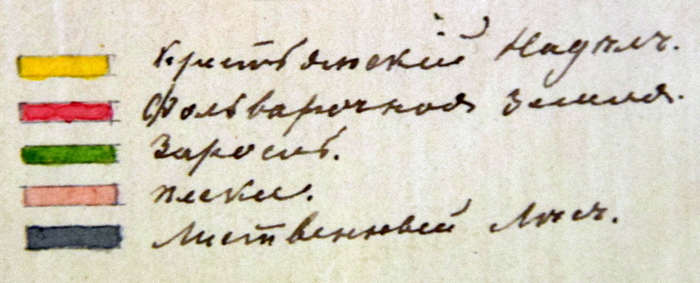 Крестьянский Надѣлъ.
Фольварочная Земля.
Заросль.
пески.
Лиственный Лѣсъ.